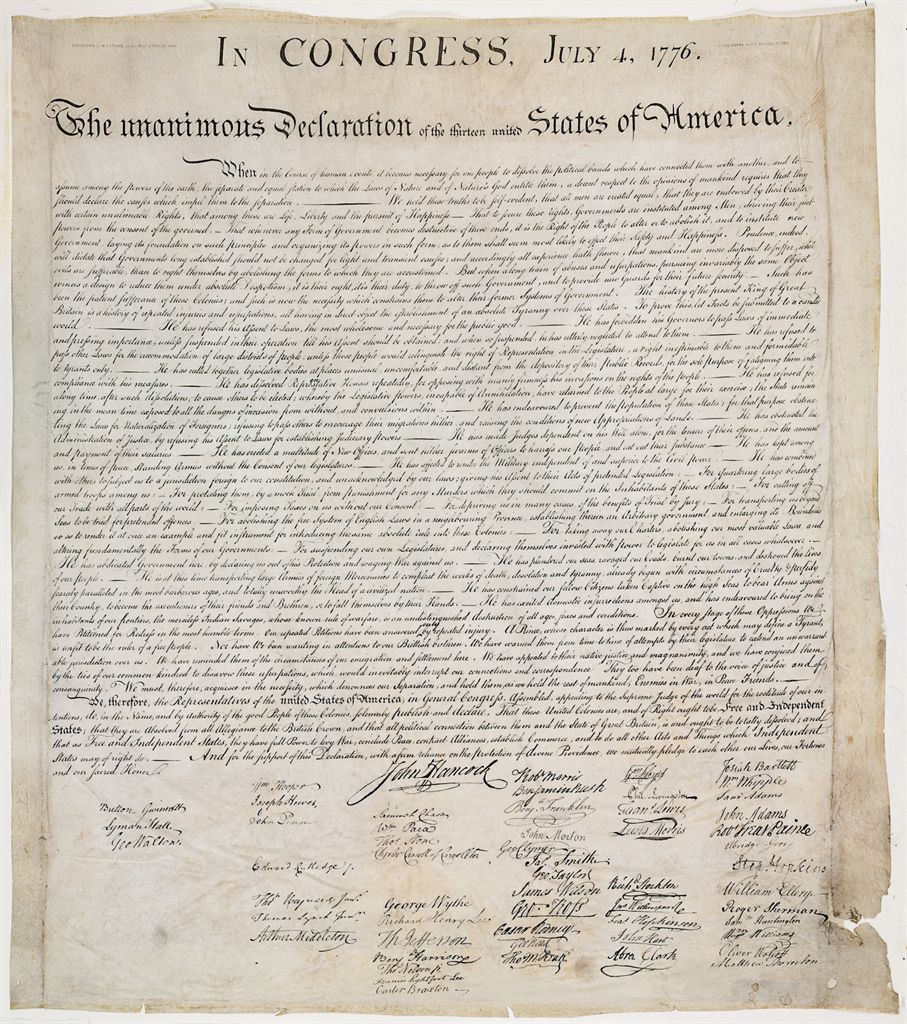 In CONGRESS, July 4, 1776.
The unanimous Declaration of the thirteen united States of America,
When in the Course of human events, it becomes necessary for one people to dissolve the political bands which have connected them with another, and to
assume among the powers of the earth, the separate and equal station to which the Laws of Nature and of Nature's God entitle them, a decent respect to the opinions of mankind requires that they
should declare the causes which impel them to the separation. — We hold these truths to be self-evident, that all men are created equal, that they are endowed by their Creator
with certain unalienable Rights, that among these are Life, Liberty and the pursuit of Happiness. — That to secure these rights, Governments are instituted among Men, deriving their just
powers from the consent of the governed, — That whenever any Form of Government becomes destructive of these ends, it is the Right of the People to alter or to abolish it, and to institute new
Government, laying its foundation on such principles and organizing its powers in such form, as to them shall seem most likely to effect their Safety and Happiness. Prudence, indeed,
will dictate that Governments long established should not be changed for light and transient causes; and accordingly all experience hath shewn, that mankind are more disposed to suffer, while
evils are sufferable, than to right themselves by abolishing the forms to which they are accustomed. But when a long train of abuses and usurpations, pursuing invariably the same Object
evinces a design to reduce them under absolute Despotism, it is their right, it is their duty, to throw off such Government, and to provide new Guards for their future security. — Such has
been the patient sufferance of these Colonies; and such is now the necessity which constrains them to alter their former Systems of Government. The history of the present King of Great
Britain is a history of repeated injuries and usurpations, all having in direct object the establishment of an absolute Tyranny over these States. To prove this, let Facts be submitted to a candid
world. — He has refused his Assent to Laws, the most wholesome and necessary for the public good. — He has forbidden his Governors to pass Laws of immediate
and pressing importance, unless suspended in their operation till his Assent should be obtained; and when so suspended, he has utterly neglected to attend to them. — He has refused to
pass other Laws for the accommodation of large districts of people, unless those people would relinquish the right of Representation in the Legislature, a right inestimable to them and formidable
to tyrants only. — He has called together legislative bodies at places unusual, uncomfortable, and distant from the depository of their Public Records, for the sole purpose of fatiguing them into
compliance with his measures. — He has dissolved Representative Houses repeatedly, for opposing with manly firmness his invasions on the rights of the people. — He has refused for
a long time, after such dissolutions, to cause others to be elected; whereby the Legislative powers, incapable of Annihilation, have returned to the People at large for their exercise; the State remain-
ing in the mean time exposed to all the dangers of invasion from without, and convulsions within. — He has endeavoured to prevent the population of these States; for that purpose obstruc-
ting the Laws for Naturalization of Foreigners; refusing to pass others to encourage their migrations hither, and raising the conditions of new Appropriations of Lands. — He has obstructed the
Administration of Justice, by refusing his Assent to Laws for establishing Judiciary powers. — He has made Judges dependent on his Will alone, for the tenure of their offices, and the amount
and payment of their salaries. — He has erected a multitude of New Offices, and sent hither swarms of Officers to harrass our people, and eat out their substance. — He has kept among
us, in times of peace, Standing Armies without the Consent of our legislatures. — He has affected to render the Military independent of and superior to the Civil power. — He has combined
with others to subject us to a jurisdiction foreign to our constitution, and unacknowledged by our laws; giving his Assent to their Acts of pretended Legislation: — For Quartering large bodies of
armed troops among us: — For protecting them, by a mock Trial, from punishment for any Murders which they should commit on the Inhabitants of these States: — For cutting off
our Trade with all parts of the world: — For imposing Taxes on us without our Consent: — For depriving us in many cases, of the benefits of Trial by Jury: — For transporting us beyond
Seas to be tried for pretended offences — For abolishing the free System of English Laws in a neighbouring Province, establishing therein an Arbitrary government, and enlarging its Boundaries
so as to render it at once an example and fit instrument for introducing the same absolute rule into these Colonies: — For taking away our Charters, abolishing our most valuable Laws, and
altering fundamentally the Forms of our Governments: — For suspending our own Legislatures, and declaring themselves invested with power to legislate for us in all cases whatsoever. —
He has abdicated Government here, by declaring us out of his Protection and waging War against us. — He has plundered our seas, ravaged our Coasts, burnt our towns, and destroyed the Lives
of our people. — He is at this time transporting large Armies of foreign Mercenaries to compleat the works of death, desolation and tyranny, already begun with circumstances of Cruelty & perfidy
scarcely paralleled in the most barbarous ages, and totally unworthy the Head of a civilized nation. — He has constrained our fellow Citizens taken Captive on the high Seas to bear Arms against
their Country, to become the executioners of their friends and Brethren, or to fall themselves by their Hands. — He has excited domestic insurrections amongst us, and has endeavoured to bring on the
inhabitants of our frontiers, the merciless Indian Savages, whose known rule of warfare, is an undistinguished destruction of all ages, sexes and conditions. In every stage of these Oppressions We
have Petitioned for Redress in the most humble terms: Our repeated Petitions have been answered only by repeated injury. A Prince, whose character is thus marked by every act which may define a Tyrant,
is unfit to be the ruler of a free people. Nor have We been wanting in attentions to our Brittish brethren. We have warned them from time to time of attempts by their legislature to extend an unwarrant-
able jurisdiction over us. We have reminded them of the circumstances of our emigration and settlement here. We have appealed to their native justice and magnanimity, and we have conjured them
by the ties of our common kindred to disavow these usurpations, which, would inevitably interrupt our connections and correspondence. They too have been deaf to the voice of justice and of
consanguinity. We must, therefore, acquiesce in the necessity, which denounces our Separation, and hold them, as we hold the rest of mankind, Enemies in War, in Peace Friends. —
We, therefore, the Representatives of the united States of America, in General Congress, Assembled, appealing to the Supreme Judge of the world for the rectitude of our in-
tentions, do, in the Name, and by Authority of the good People of these Colonies, solemnly publish and declare, That these United Colonies are, and of Right ought to be Free and Independent
States; that they are Absolved from all Allegiance to the British Crown, and that all political connection between them and the State of Great Britain, is and ought to be totally dissolved; and
that as Free and Independent States, they have full Power to levy War, conclude Peace, contract Alliances, establish Commerce, and to do all other Acts and Things which Independent
States may of right do. — And for the support of this Declaration, with a firm reliance on the protection of divine Providence, we mutually pledge to each other our Lives, our Fortunes
and our sacred Honor.
Button Gwinnett
Lyman Hall
Geo Walton.
Wm Hooper
Joseph Hewes,
John Penn
Edward Rutledge
Thos Heyward Junr.
Thomas Lynch Junr.
Arthur Middleton
John Hancock
Samuel Chase
Wm Paca
Thos Stone
Charles Carroll of Carrollton
George Wythe
Richard Henry Lee
Th Jefferson
Benj Harrison
Thos Nelson jr.
Francis Lightfoot Lee
Carter Braxton
Robt Morris
Benjamin Rush
Benja Franklin
John Morton
Geo Clymer
Jas Smith
Geo. Taylor
James Wilson
Geo. Ross
Caesar Rodney
Geo Read
Tho M:Kean
Wm Floyd
Phil. Livingston
Frans Lewis
Lewis Morris
Richd Stockton
Jno Witherspoon
Fras Hopkinson
John Hart
Abra Clark
Josiah Bartlett
Wm Whipple
Saml Adams
John Adams
Robt Treat Paine
Elbridge Gerry
Step Hopkins
William Ellery
Roger Sherman
Saml Huntington
Wm Williams
Oliver Wolcott
Matthew Thornton